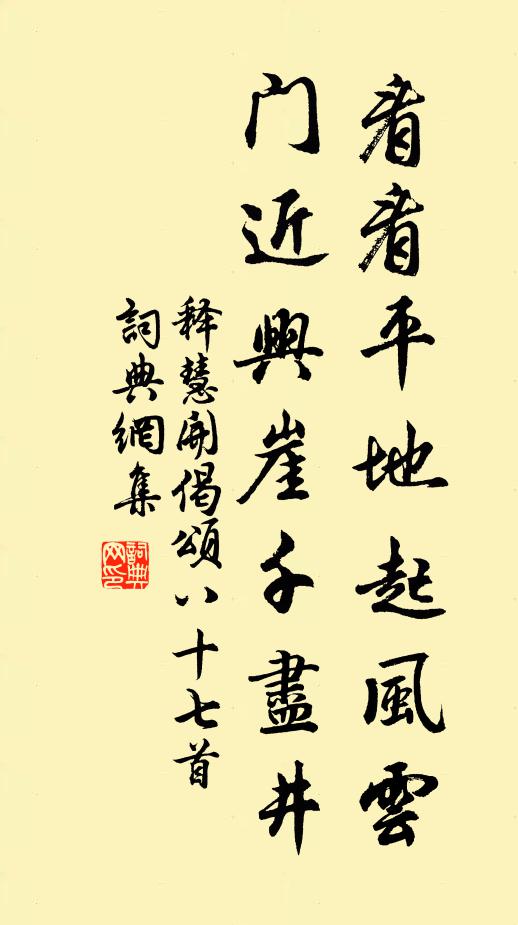 看看平地起風雲
门近興崖千盡井
释慧開偈頌八十七首
詞典網集
詞典網印